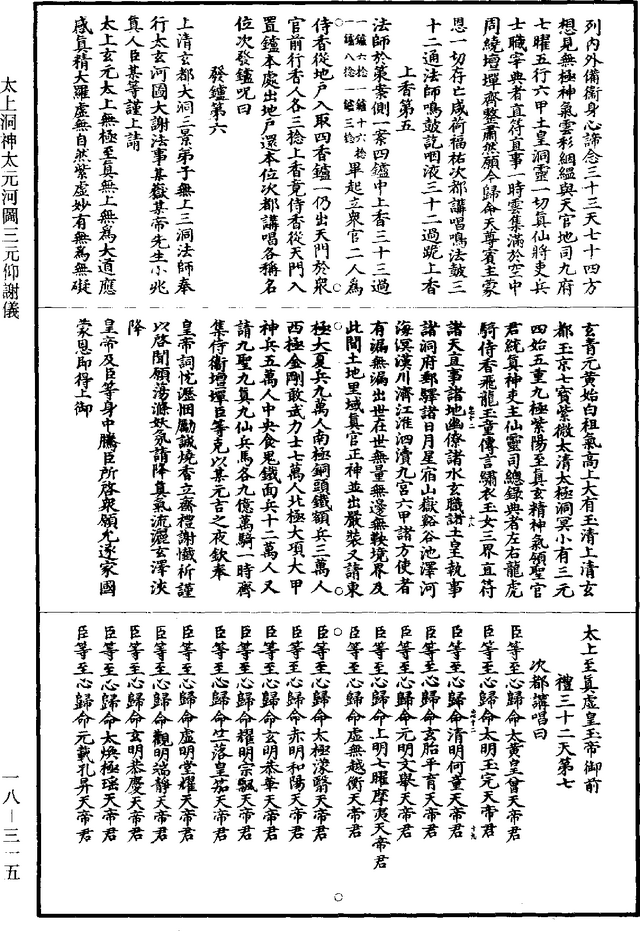 列內外備衛身心諦念三十三天七十四方
想見無極神氣雲彩絪縕與天官地司九府
七曜五行六甲土皇洞靈一切真仙將吏兵
士職宰典者直符直事一時雲集滿於空中
周繞壇墠齊整肅然願今歸命天尊賓主蒙
恩一切存亡咸荷福祐次都講唱鳴法皷三
十二通法師鳴皷訖咽液三十二過跪上香
上香第五
法師於案側一案四鑪中上香三十三過
一鑪六捻一鑪十六捻
一鑪八捻一鑪三捻
畢起立衆官二人為
侍香從地戶入取四香鑪一仍出天門於衆
官前行香人各三捻上香竟侍香從天門入
置鑪本處出地戶還本位次都講唱各稱名
位次發鑪呪曰
發鑪第六
上清玄都大洞三景弟子無上三洞法師奉
行太玄河圖大謝法事某嶽某帝先生小兆
真人臣某等謹上請
太上玄元太上無極至真無上無為大道應
感真精大羅虛無自然紫虛妙有無為無礙
玄青元黃始白祖氣高上大有玉清上清玄
都玉京七寶紫微太清太極洞冥小有三元
四始五重九極紫陽至真玄精神氣領聖官
君統真神吏主仙靈司總錄典者左右龍虎
騎侍香飛龍玉童傳言繡衣玉女三界直符
諸天直事諸地幽僚諸水玄職諸土皇執事
諸洞府郵驛諸日月星宿山嶽谿谷池澤河
海溟漢川濟江淮泗瀆九宮六甲諸方使者
有漏無漏出世在世無量無邊無鞅境界及
此間土地里域真官正神並出嚴裝又請東
極大夏兵九萬人南極銅頭鐵額兵三萬人
西極金剛敢武力士七萬人北極大項大甲
神兵五萬人中央食鬼鐵面兵十二萬人又
請九聖九真九仙兵馬各九億萬騎一時齊
集侍衛壇墠臣等克以某元吉之夜欽奉
皇帝詞忱瀝悃勵誠燒香立齋禮謝懺祈謹
以啓聞願蕩滌妖氛請降真氣流灑玄澤浹
降
皇帝及臣等身中騰臣所啓衆願允遂家國
蒙恩即得上御
太上至真虛皇玉帝御前
禮三十二天第七
次都講唱曰
臣等至心歸命太黃皇曾天帝君
臣等至心歸命太明玉完天帝君
臣等至心歸命清明何童天帝君
臣等至心歸命玄胎平育天帝君
臣等至心歸命元明文舉天帝君
臣等至心歸命上明七曜摩夷天帝君
臣等至心歸命虛無越衡天帝君
臣等至心歸命太極濛翳天帝君
臣等至心歸命赤明和陽天帝君
臣等至心歸命玄明恭華天帝君
臣等至心歸命耀明宗飄天帝君
臣等至心歸命竺落皇笳天帝君
臣等至心歸命虛明堂耀天帝君
臣等至心歸命觀明端靜天帝君
臣等至心歸命玄明恭慶天帝君
臣等至心歸命太煥極瑤天帝君
臣等至心歸命元載孔昇天帝君
太上洞神太元河圖三元仰謝儀
一八－三一五